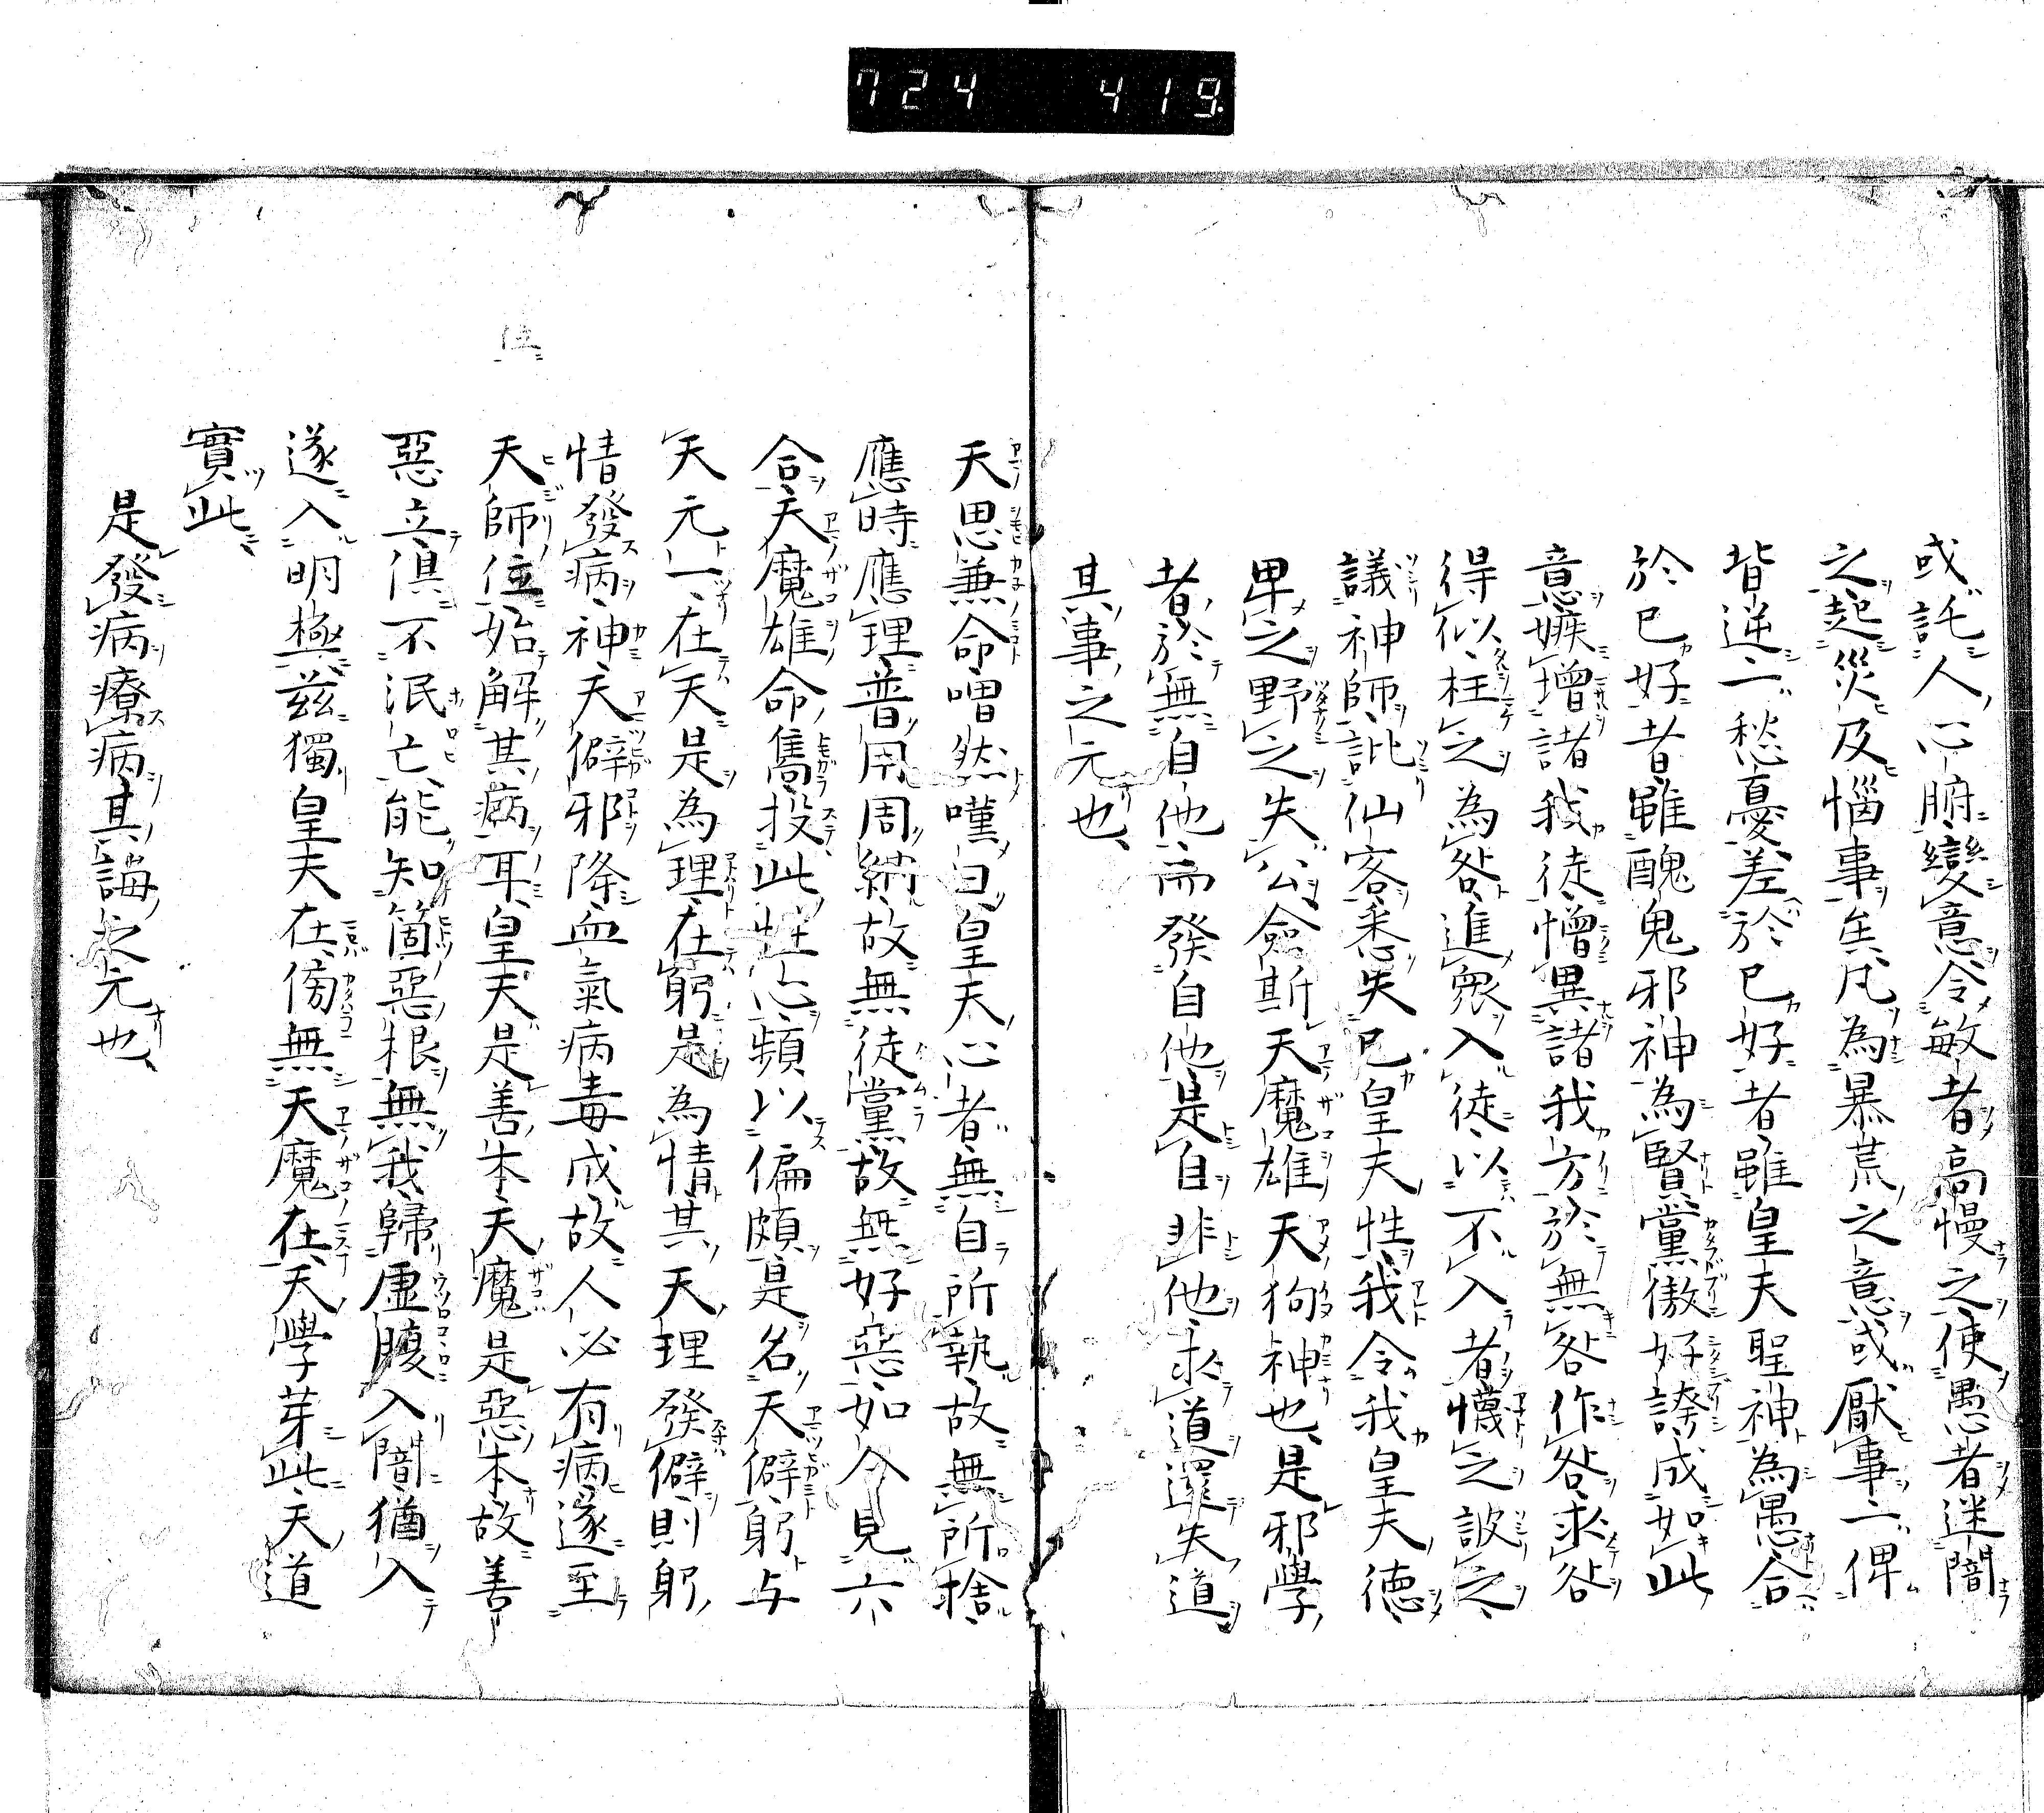 724 419
或託人心腑變意令敏者高慢之使愚者迷闇
之起災及惱事矣凡為暴荒之意或厭事二俾
背逆二愁憂差於已好者雖皇天聖神為愚合
於已好者雖醜鬼邪神為賢黨傲好誇成如此
意嫉増諸我徒憎異諸我方於無咎作咎求咎
得似枉之為咎進衆入徒以不入者懱之詖之
議神師訿仙客悉失已皇天性我令我皇天德
卑之野之失公僉斯天魔雄天狗神也是邪學
者於無自他而發自他是自非他求道還失道
其事之元也
天思兼命喟然嘆曰皇天心者無自所執故無所捨
應時應理普用周納故無徒黨故無好惡如今見六
合天魔雄命雋投此性心頻以偏頗是名天僻躬与
天元一在天是為理在躬是為情其天理發僻則躬
情發病神天僻邪降血氣病毒成故人必有病遂至
天師位始解其病耳皇天是善本天魔是惡本故善
惡立倶不泯亡能知箇惡根無我歸虛腹入闇猶入
遂入明極茲獨皇天在傍無天魔在天學芽此天道
實此
是發病療病其誨之元也
位